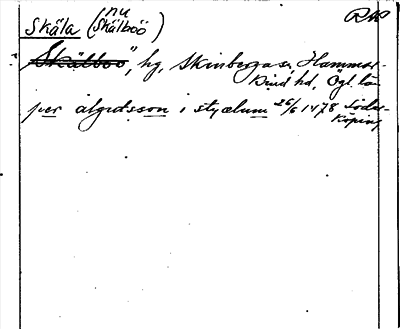 Skäla (nu Skälboö) RAP
"Skälboö", hg, Skinberga sn, Hammar-
kind hd, Ögl. län
per algutsson i skælum 26/6 1478 Söder-
köping